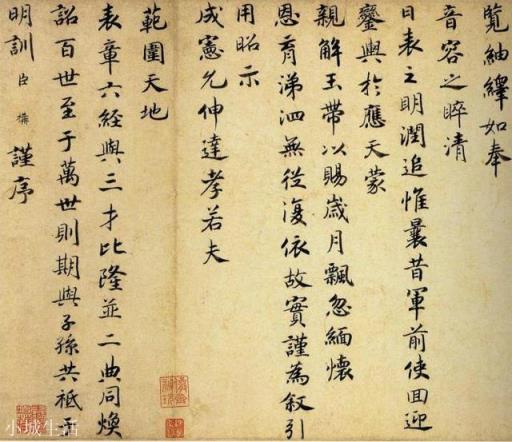 覧紬繹如奉
音容之睟清
日表之明潤追惟曩昔軍前使回迎
鑾輿於應天蒙
親解玉帶以賜歲月飄忽緬懷
恩育涕泗無從復依故實謹為叙引
用昭示
成憲允伸達孝若夫
範圍天地
表章六經與三才比隆並二典同煥
詔百世至于萬世則期與子孫共祗于
明訓臣構謹序
小城生活